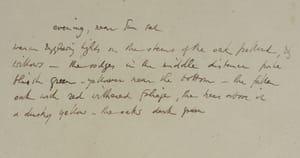 evening, near Sun set
warm lights on the stems of the oak pollard, &
willows – the sedges in the middle distance pale
bluish green – yellower near the bottom – the fallen
oak with red withered foliage, the near elm of
a dusky yellow – the oaks dark green